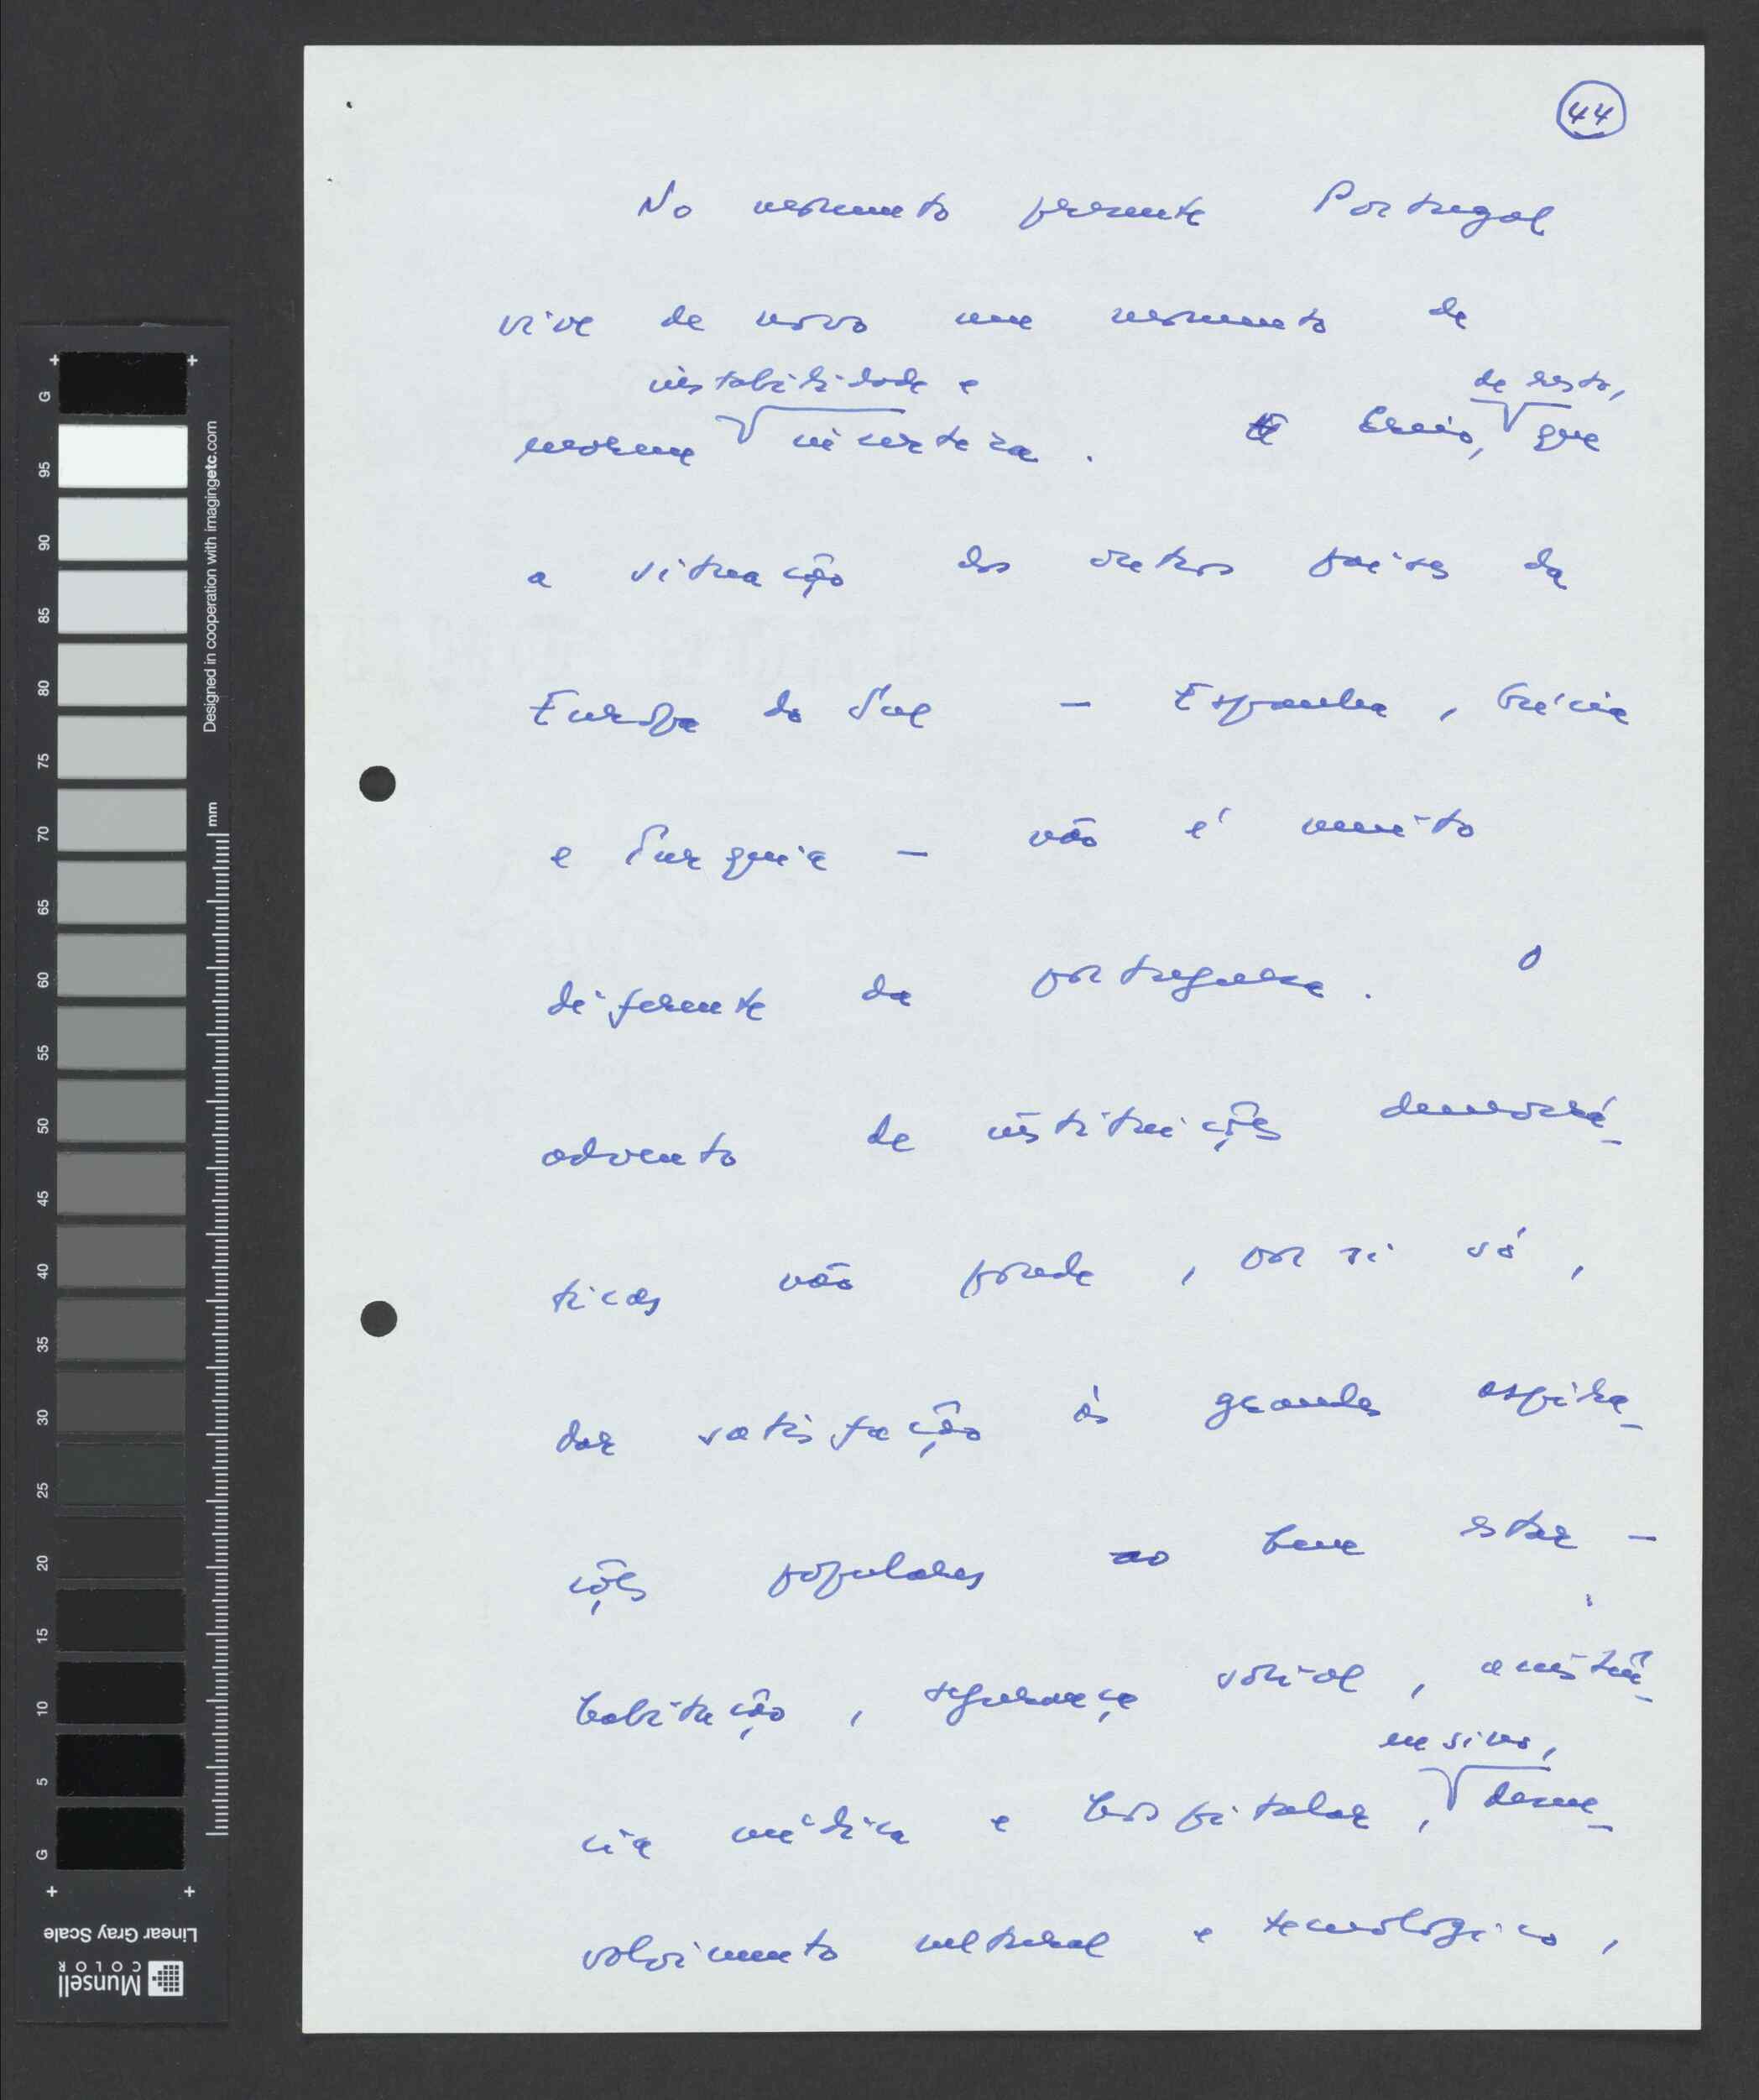 44
No momento presente Portugal
vive de novo um momento de
instabilidade e de resto,
mesmo incerteza. Creio, que
a situação dos outros países da
Europa do Sul – Espanha, Grécia
e Turquia – não é muito
diferente da portuguesa. O
advento de instituições democrá-
ticas não pode, por si só,
dar satisfação às grandes aspira-
ções populares ao bem estar –
habitação, segurança social, assistên-
ensino,
cia médica e hospitalar, desen-
volvimento cultural e tecnológico,
G 95 90 85 80 75 70 65 60 55 50 45 40 35 30 25 20 15 10 5 G
Designed in cooperation with imagingetc.com
mm
Linear Gray Scale
Munsell
COLOR